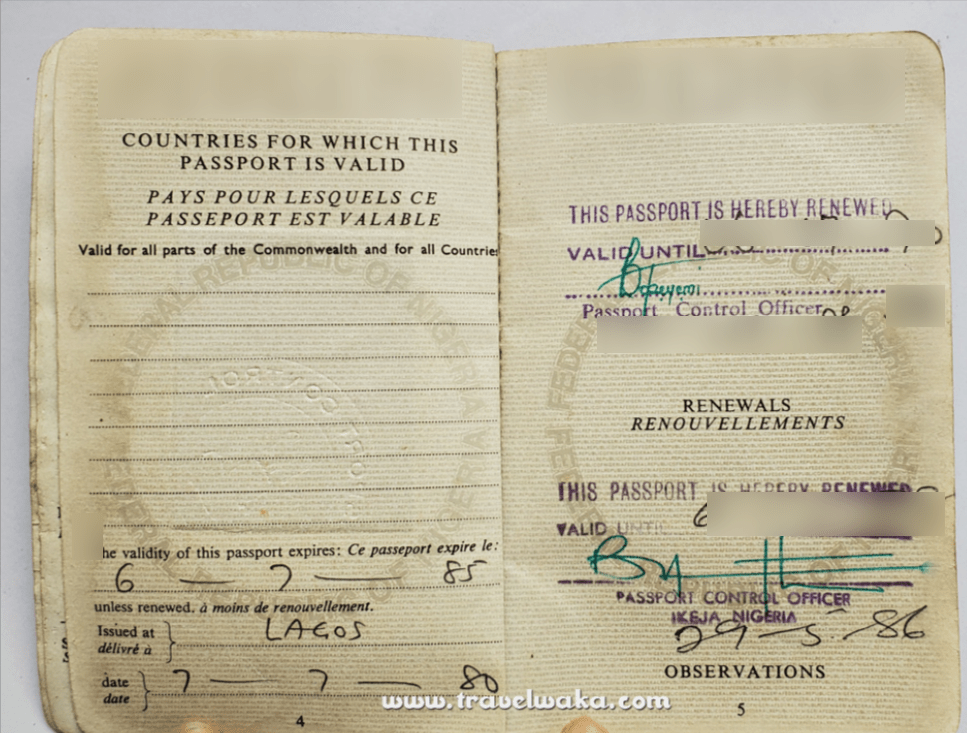 COUNTRIES FOR WHICH THIS
PASSPORT IS VALID
PAYS POUR LESQUELS CE
PASSEPORT EST VALABLE
Valid for all parts of the Commonwealth and for all Countries
FEDERAL REPUBLIC OF NIGERIA
CONTROL
he validity of this passport expires: Ce passeport expire le:
6 — 7 — 85
unless renewed, à moins de renouvellement.
Issued at
délivré à
LAGOS
date
date
7 — 7 — 80
4
THIS PASSPORT IS HEREBY RENEWED
VALID UNTIL
Passport Control Officer
FEDERAL REPUBLIC OF NIGERIA
RENEWALS
RENOUVELLEMENTS
THIS PASSPORT IS HEREBY RENEWED
VALID UNTIL 6
PASSPORT CONTROL OFFICER
IKEJA, NIGERIA
29-5-86
OBSERVATIONS
5
www.travelwaka.com